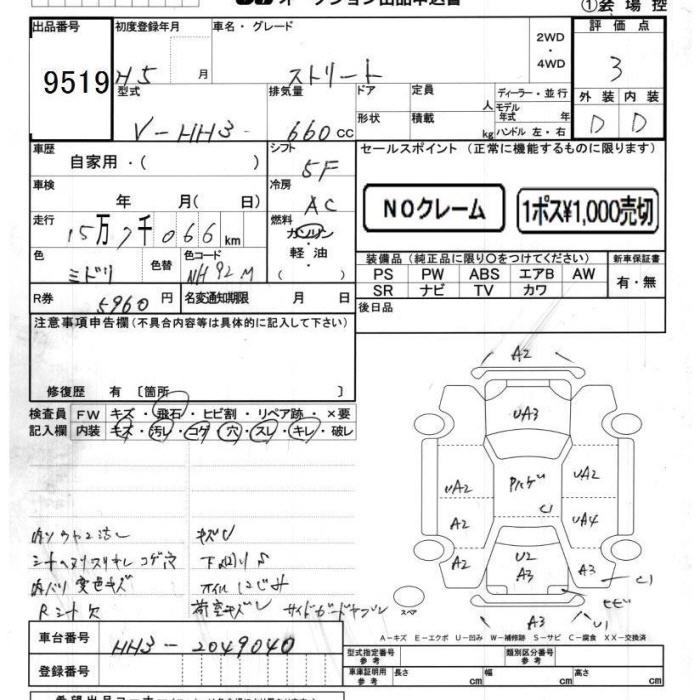 オークション出品申込書
①会場控
出品番号 初度登録年月 車名・グレード 2WD・4WD 評価点
9519 H5 月 ストリート 3
型式 排気量 ドア 定員 人 ディーラー・並行 外装 内装
V-HH3- 660cc 形状 積載 kg モデル年式 年 ハンドル 左・右 D D
車歴 自家用・( ) シフト 5F セールスポイント(正常に機能するものに限ります)
車検 年 月( 日) 冷房 AC NOクレーム 1ポス¥1,000売切
走行 15万7千066km 燃料 ガソリン・軽油・( )
色 ミドリ 色替 色コード NH92M
装備品(純正品に限り○をつけてください) 新車保証書
PS PW ABS エアB AW 有・無
SR ナビ TV カワ
R券 5960円 名変通知期限 月 日 後日品
注意事項申告欄(不具合内容等は具体的に記入して下さい)
修復歴 有[箇所 ]
検査員 FW キズ・飛石・ヒビ割・リペア跡・×要
記入欄 内装 キズ・汚レ・コゲ・穴・スレ・キレ・破レ
A2
UA3
UA2 UA2
A2 C1 UA4
A2 U2 A3 A3 C1
ヒビ
A3 U1
スペア
キズU
シートヘタリスリキレコゲ穴 下廻りS
内バリ変色キズ オイルにじみ
Rシート欠 荷室キズレ サイドガードケブレ
A-キズ E-エクボ U-凹み W-補修跡 S-サビ C-腐食 XX-交換済
車台番号 HH3-2049040
登録番号
型式指定番号 参考 類別区分番号 参考
車庫証明用 参考 長さ cm 幅 cm 高さ cm